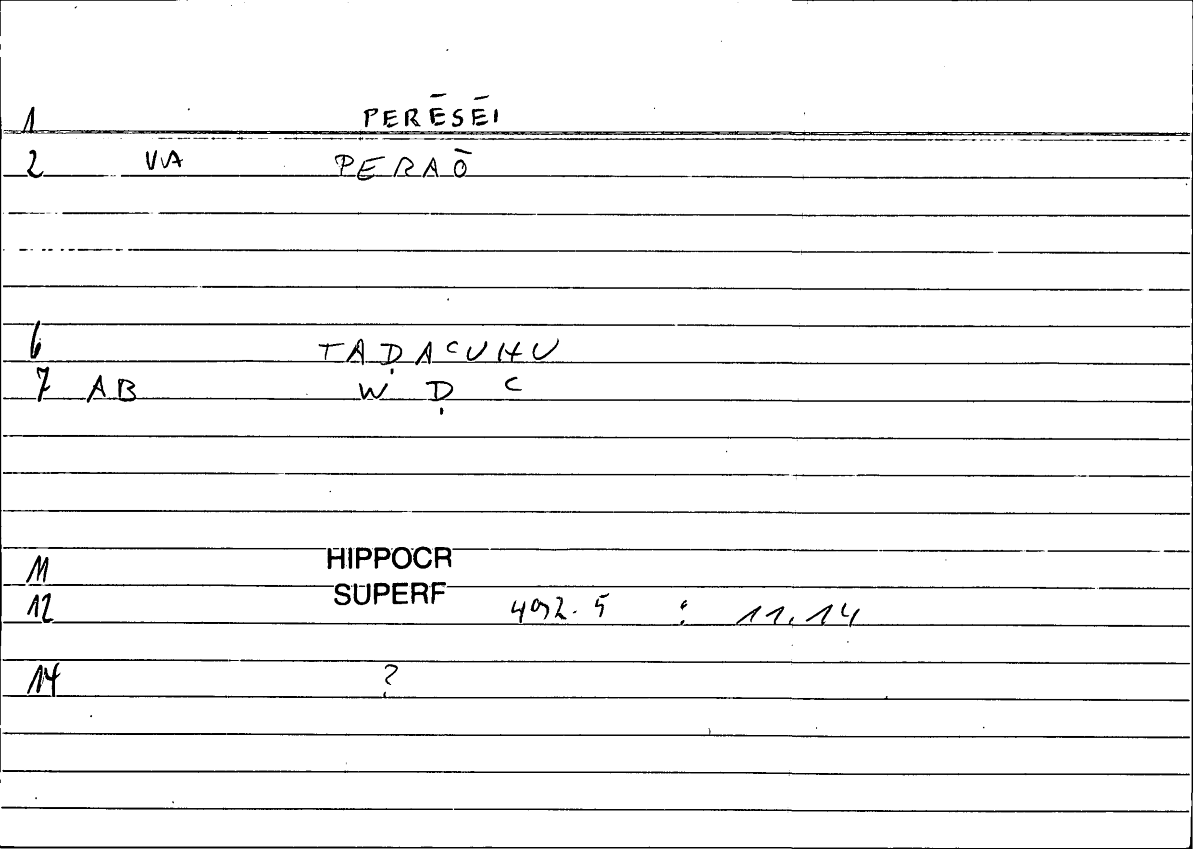 1 PERĒSĒI
2 VA PERAŌ
6 TAḌACUHU
7 AB W Ḍ C
11 HIPPOCR
12 SUPERF 492.5 : 11.14
14 ?